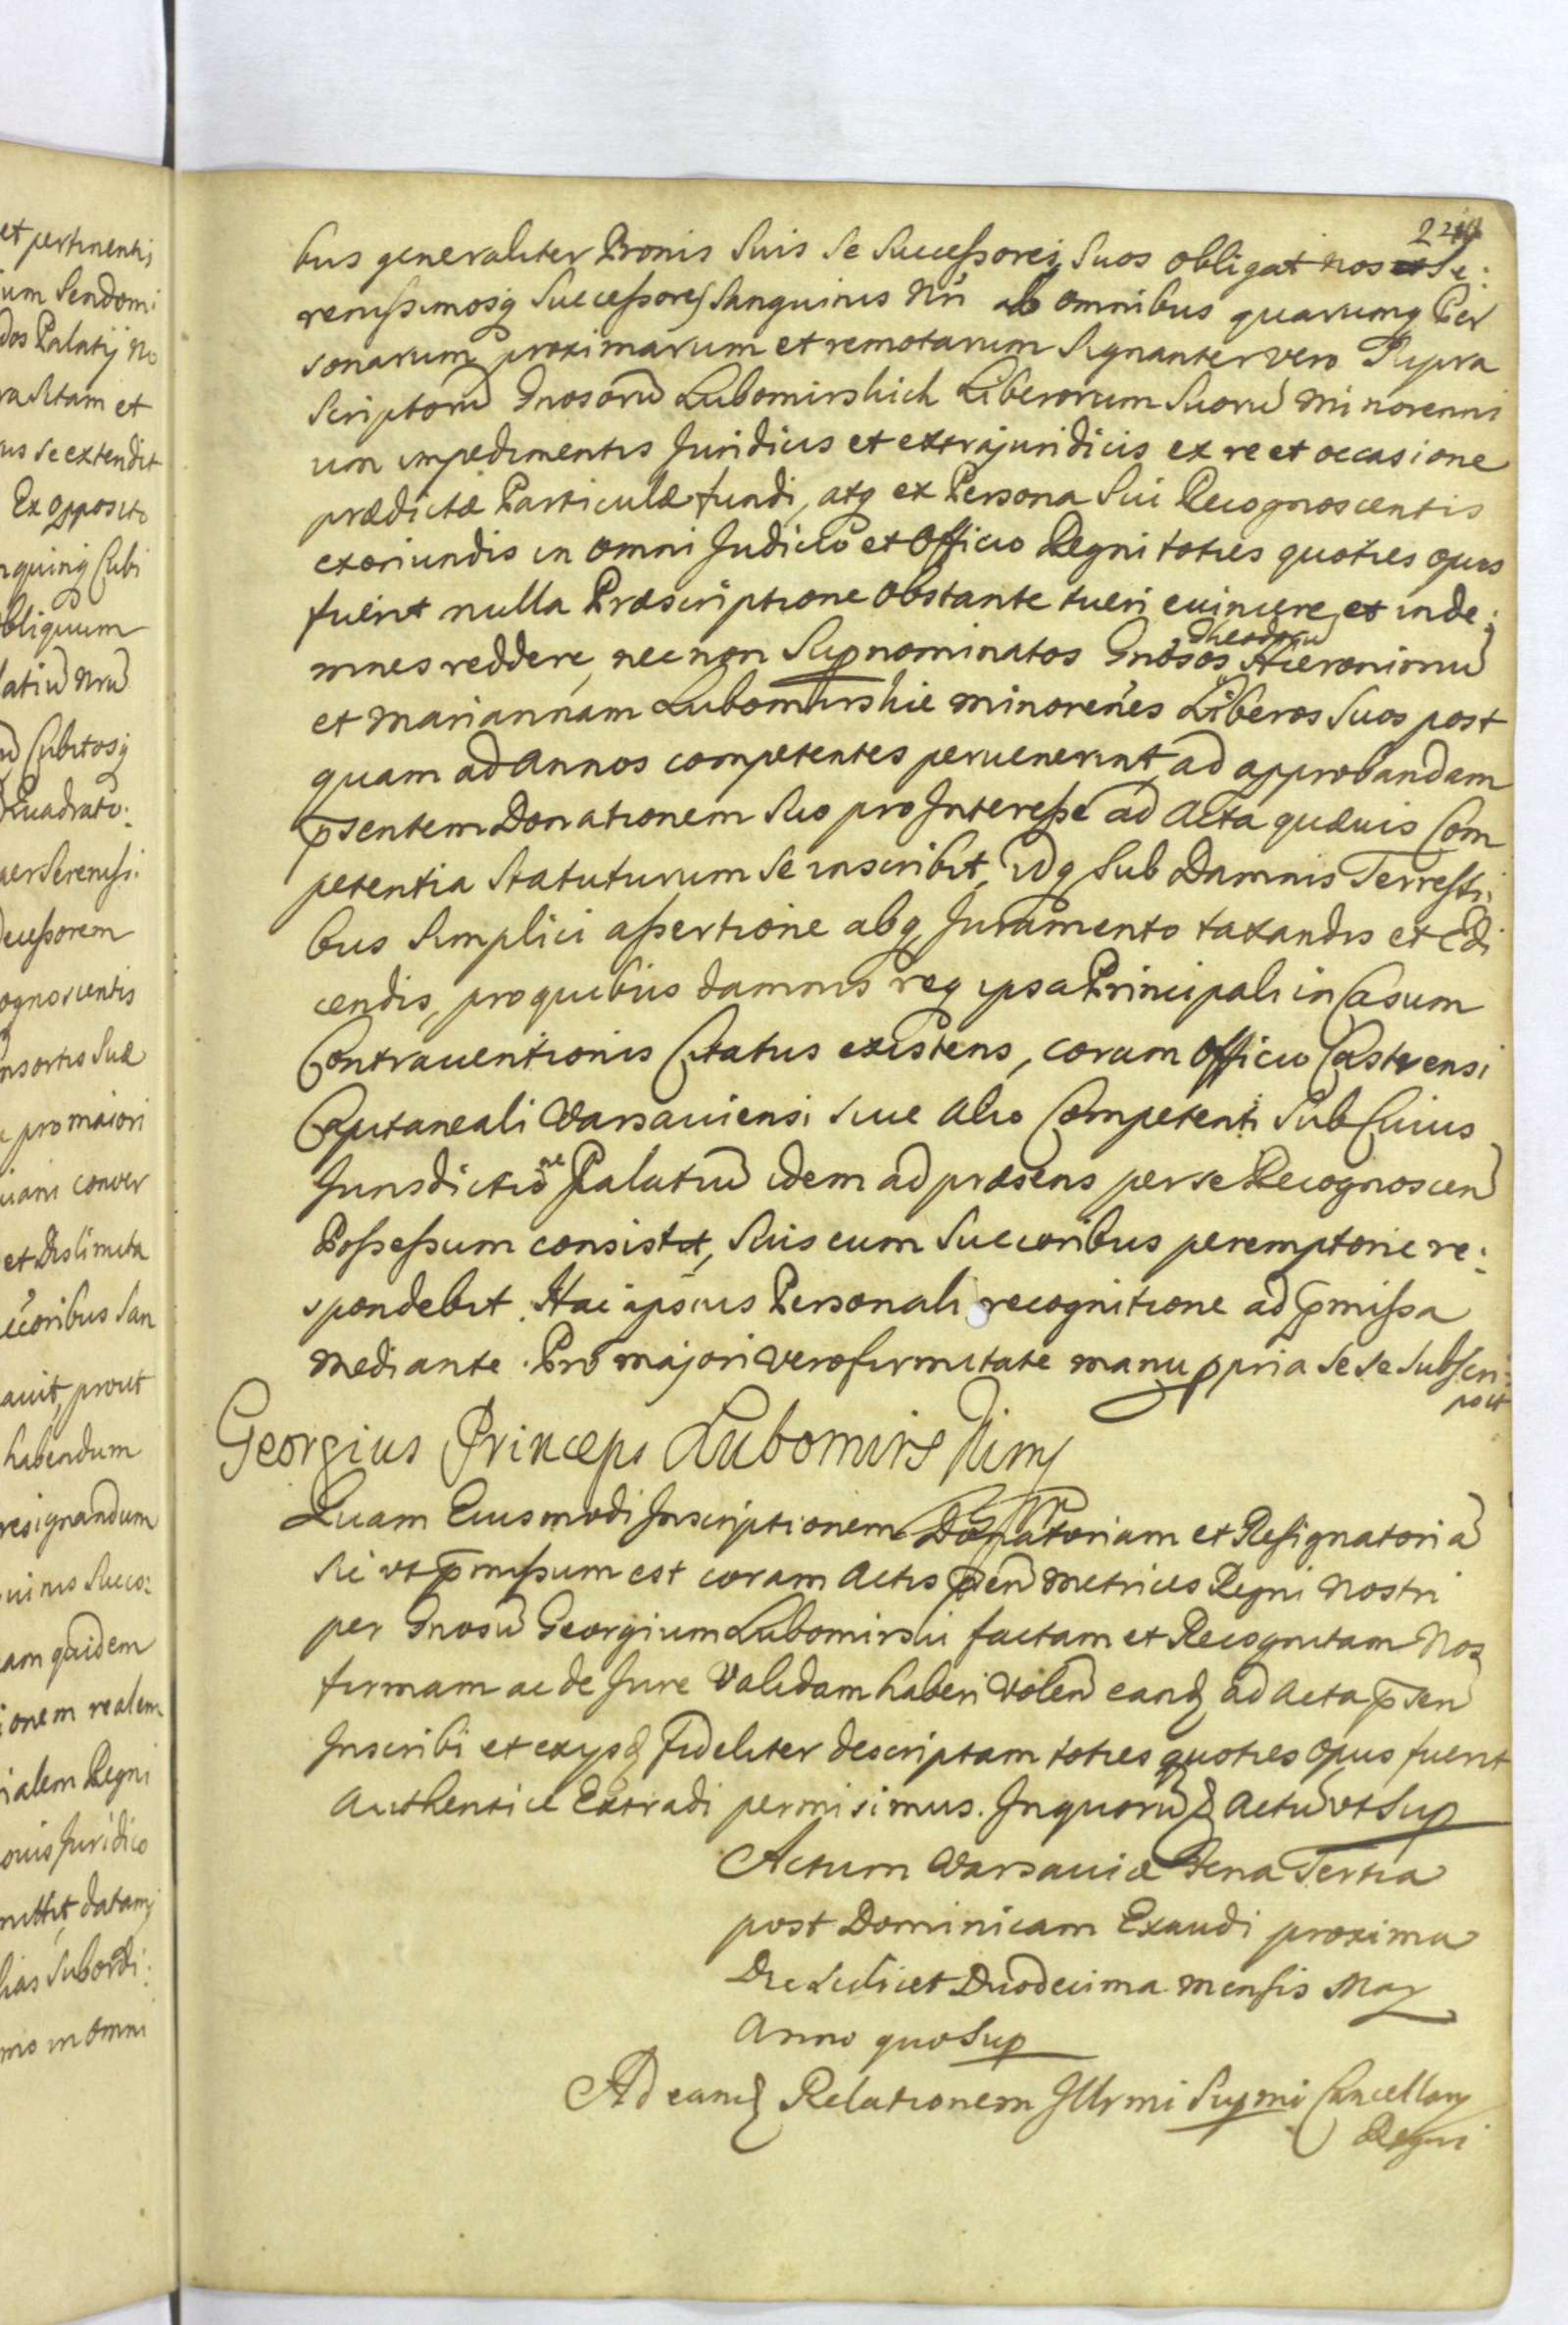 et pertinenti
um Sendomi
dos Palatij no
ra Sitam et
us se extendit
Ex opposito
nquinq Cubi
bliquum
latiu nru
Cubitosq
Quadrato:
per Sereniss:
decessorem
ognoscentis
nsortis Suæ
pro maiori
uiam conver
et Dislimita
ccoribus San
auit, prout
habendum
resignandum
uinis Succo:
am quidem
ionem realem
ialem Regni
ouis Juridico
mittit, datam
lias Subordi:
mo in omni
bus generaliter Bonis Suis Se Successores, Suos obligat nos et Se:
renissimosq Successores Sanguinis Nri ab omnibus quarumq Per
sonarum proximarum et remotarum Signanter vero Supra
Scriptoru Gnosoru Lubomirskich Liberorum Suoru minorenni
um impedimentis Juridicis et extrajuridicis ex re et occasione
prædictæ Particulæ fundi, atq ex Persona Sui Recognoscentis
exoriundis in omni Judicio et Officio Regni toties quoties opus
fuerit nulla Præscriptione obstante tueri euincere, et inde:
mnes reddere, nec non Supnominatos Gnosos Theodoru Hieronimu
et Mariannam Lubomirskie minorenes Liberos Suos post
quam ad Annos competentes peruenerint, ad approbandam
psentem Donationem Suo pro Interesse ad Acta quæuis Com
petentia Statuturum Se inscribit, Idq Sub Damnis Terrestri
bus Simplici assertione absq Juramento taxandis et Edi
cendis, pro quibus damnis req ipsa Principali in Casum
Contrauentionis Citatus existens, coram Officio Castrensi
Capitaneali Varsauiensi Siue Alio Competenti Sub Cuius
Jurisdictiõne Palatiu idem ad præsens per se Recognoscen
Possessum consistit, Suis cum Succoribus peremptorie re:
spondebit. Hac ipsius Personali recognitione ad pmissa
mediante. Pro majori vero firmitate manu ppria Se Se Subscri:
psit
Georgius Princeps Lubomirskimp
Quam Eiusmodi Inscriptionem Donatoriam et Resignatoria
Sic vt pmissum est coram Actis psen Metrices Regni Nostri
per Gnosu Georgium Lubomirski factam et Recognitam Nos
firmam ac de Jure Validam haberi Volen eand ad Acta psen
Inscribi et ex ijsd fideliter descriptam toties quoties opus fuerit
Authentice Extradi permisimus. In quoru & Actu vt Sup
Actum Varsauiæ Feria Tertia
post Dominicam Exaudi proxima
Die Scilicet Duodecima mensis Maij
Anno quo Sup
Ad eand Relationem Illrmi Supmi Cancellarij
Regni